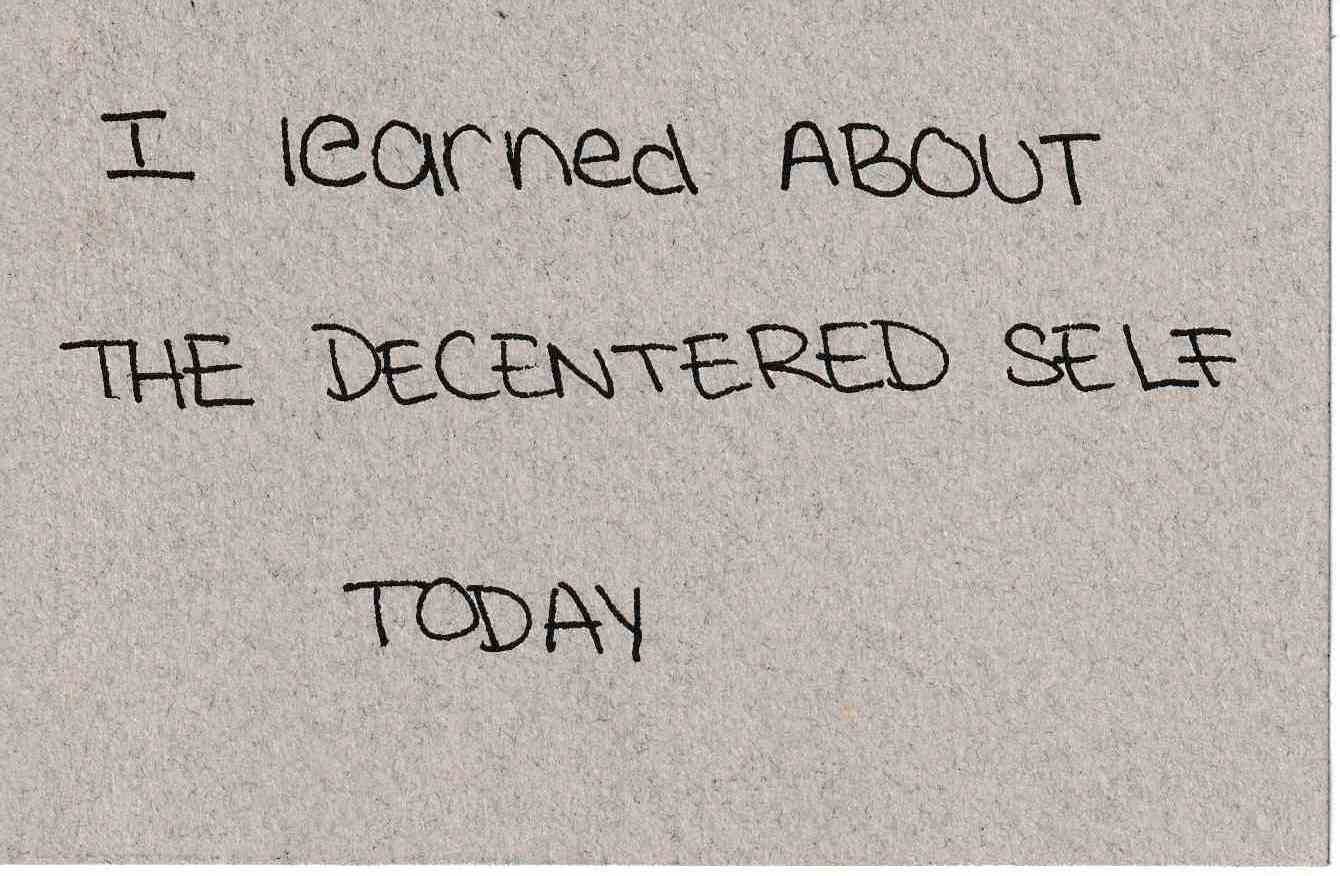 I learned ABOUT
THE DECENTERED SELF
TODAY